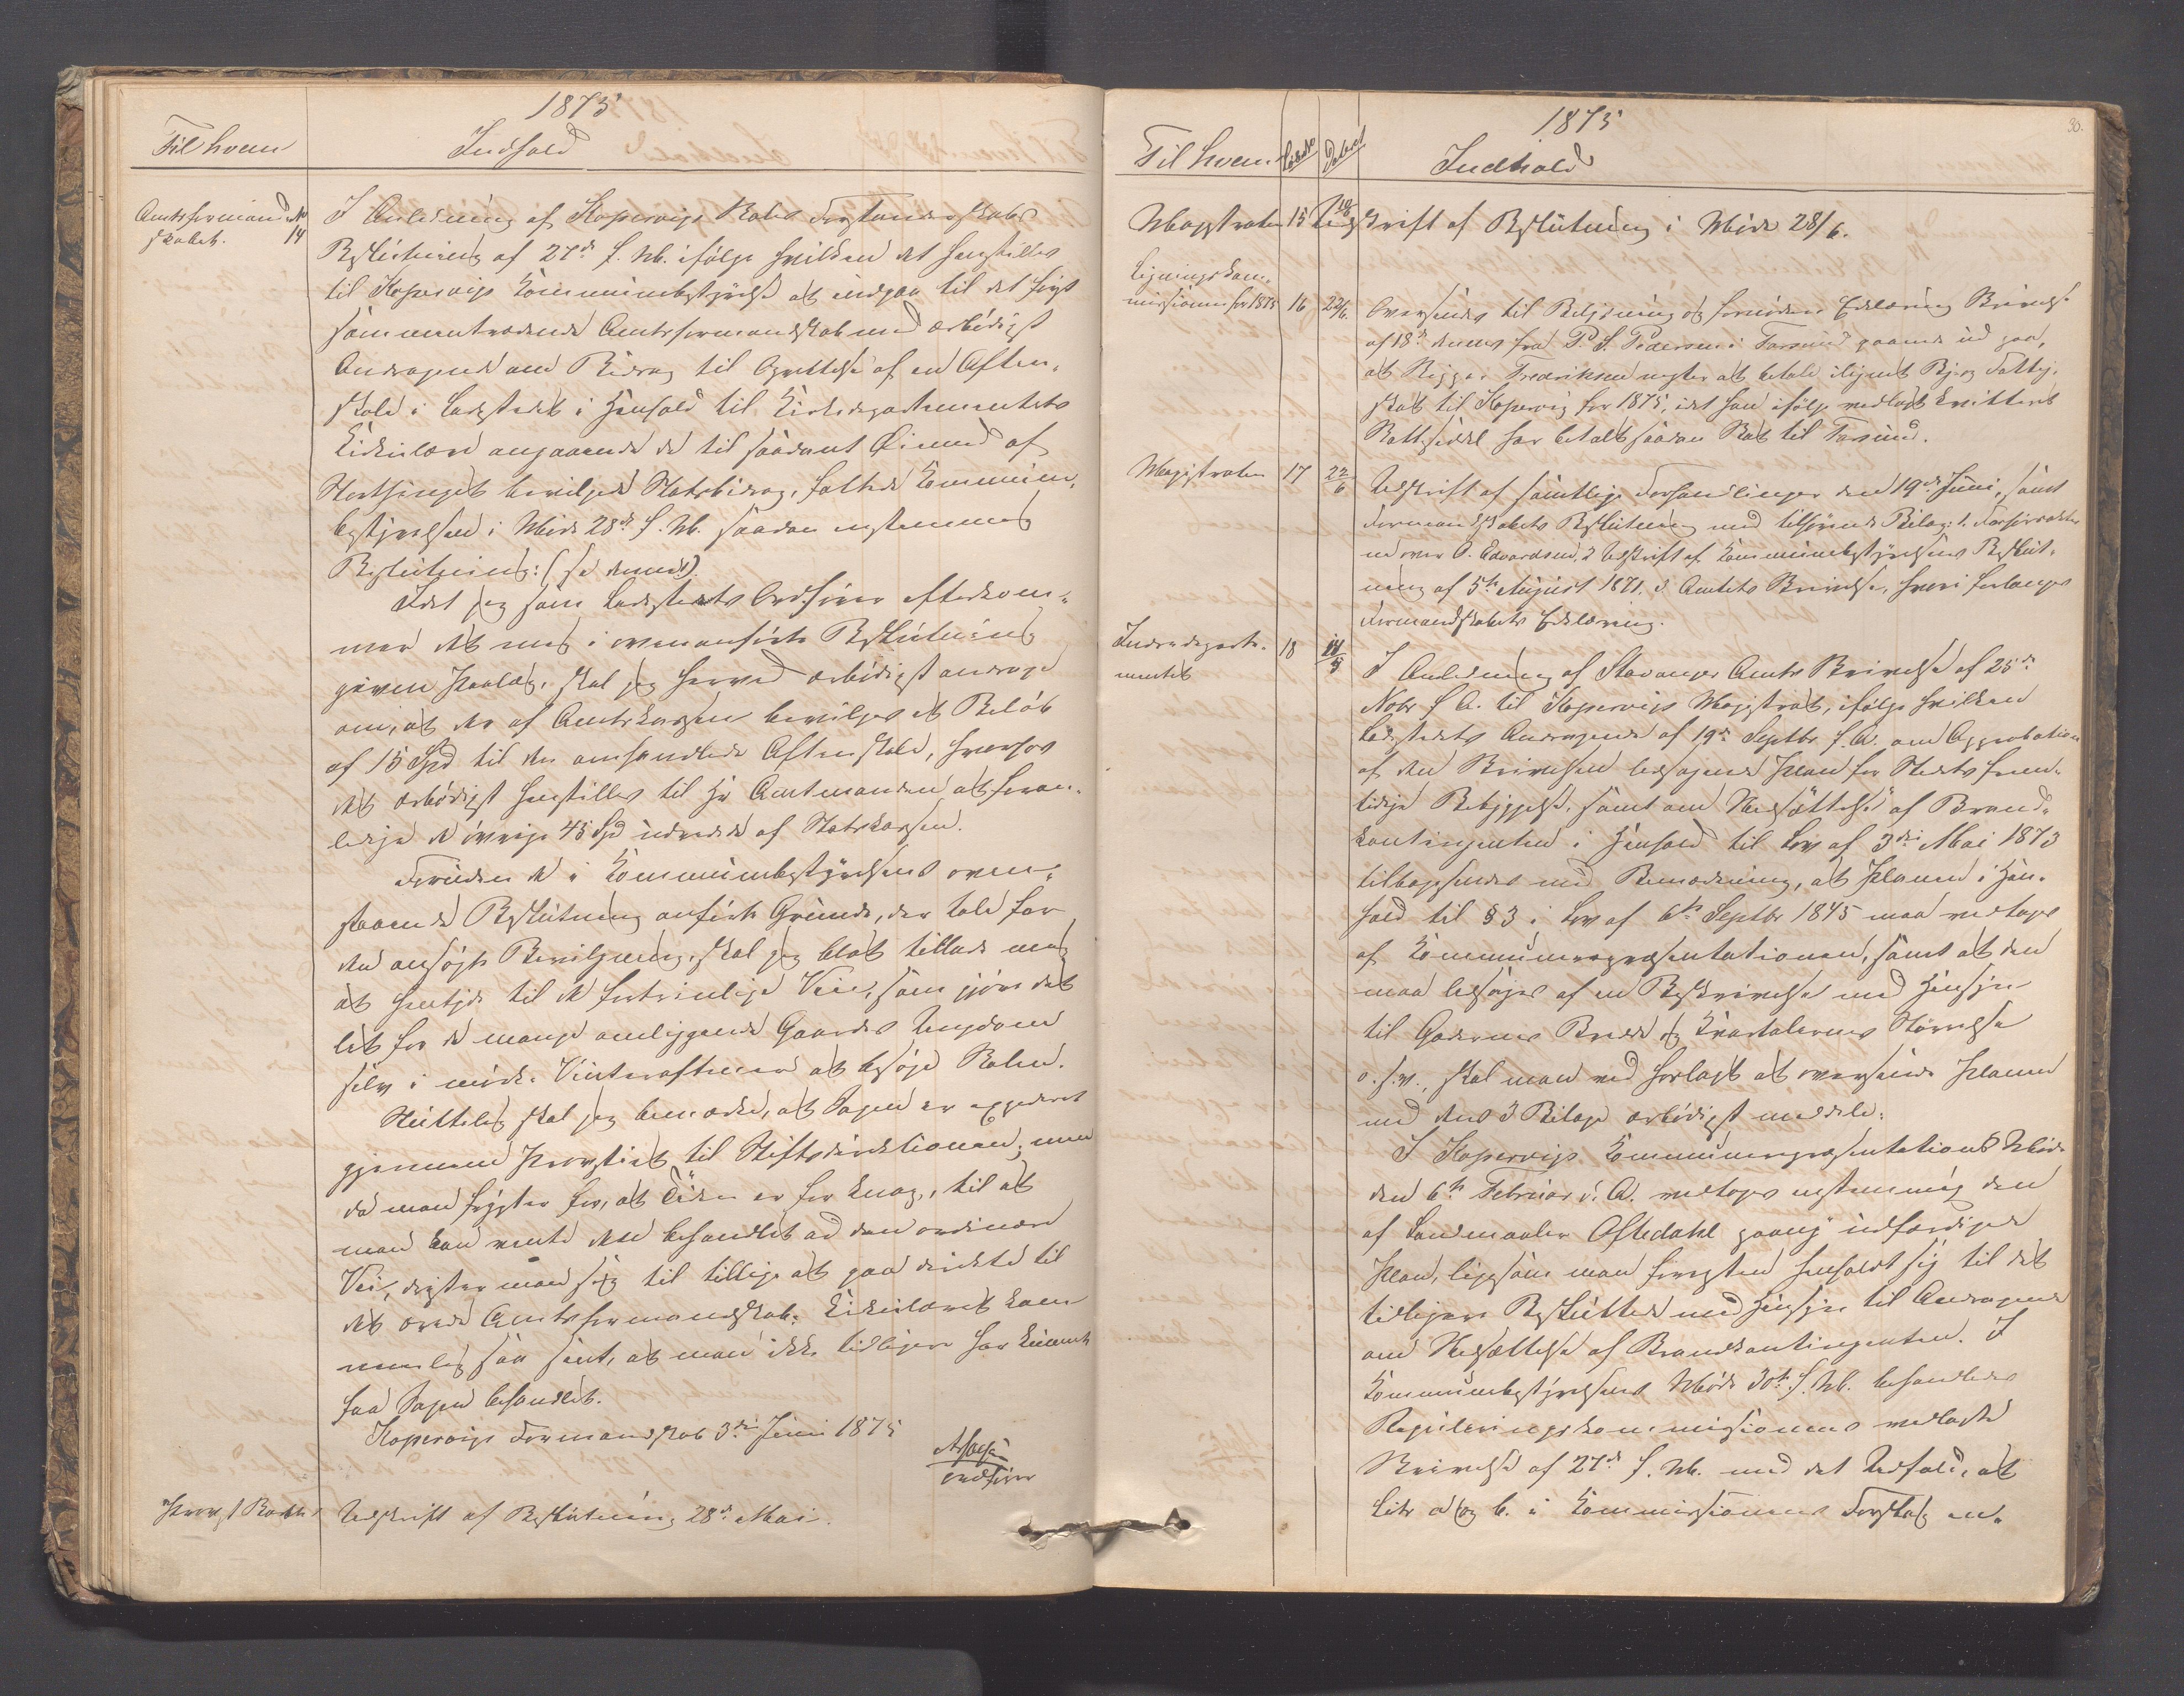 1875
Til hvem
Indhold
Amtsformand- No
skabet. 14
I Anledning af Kopervigs Skoles Forstanderskabs
Beslutning af 27de f. M. ifølge hvilken det henstilles
til Kopervigs Kommunebestyrelse at indgaa til det først
sammentrædende Amtsformandskab med ærbødigst
Andragende om Bidrag til Oprettelse af en Aften-
skole i Ladestedet i Henhold til Kirkedepartementets
Cirkulære angaaende de til saadant Øiemed af
Storthinget bevilgede Statsbidrag, fattede Kommune-
bestyrelsen i Møde 28de f. M. saadan enstemmig
Beslutning: (se denne).
Idet jeg som Ladestedets Ordfører efterkom-
mer det mig i ovenanførte Beslutning
givne Paalæg, skal jeg herved ærbødigst andrage
om, at der af Amtskassen bevilges et Beløb
af 15 Spd til den omhandlede Aftenskole, hvorhos
det ærbødigst henstilles til Hr Amtmanden at foran-
ledige de øvrige 45 Spd udredede af Statskassen.
Foruden de i Kommunebestyrelsens oven-
staaende Beslutning anførte Grunde, der tale for
den ansøgte Bevilgning, skal jeg blot tillade mig
at hentyde til de fortrinlige Veie, som gjøre det
let for de mange omliggende Gaardes Ungdom
selv i mørke Vinteraftener at besøge Skolen.
Sluttelig skal jeg bemærke, at Sagen er expederet
gjennem Provstiet til Stiftsdirektionen; men
da man frygter for, at Tiden er for knap, til at
man kan vente den behandlet ad den ordinære
Vei, drister man sig til tillige at gaa direkte til
det ærede Amtsformandskab. Cirkulæret kom
nemlig saa sent, at man ikke tidligere har kunnet
faa Sagen behandlet.
Kopervigs Formandskab 3die Juni 1875
Ordfører
Provst Udskrift af Beslutning 28de Mai.
1875
30.
Til hvem
Datum
Indhold
Magstraten 15 Udskrift af Beslutning i Møde 28/6.
Ligningskom-
missionen for 1875 16 22/6. Oversendes til Belysning og fornøden Erklæring Skrivelse
af 18de dennes fra P. S. Pedersen i Farsund gaaende ud paa,
at Rigger Fredriksen negter at betale ilignet By og Fattig-
skat til Kopervig for 1875, idet han ifølge vedlagt kvitteret
Skatteseddel har betalt saadan Skat til Farsund.
Magistraten 17 22/6 Udskrift af samtlige Forhandlinger den 19de Juni, samt
Formandskabets Beslutning med tilhørende Bilag: 1.
over O. Edvardsen, 2 Udskrift af Kommunebestyrelsens Beslut-
ning af 5te August 1871, 3 Amtets Skrivelse, hvori forlanges
Formandskabets Erklæring.
Indredeparte- 18
mentet
I Anledning af Stavanger Amts Skrivelse af 25de
Novbr f. A. til Kopervigs Magistrat, ifølge hvilken
Ladestedets Andragende af 19de Septbr. f. A. om Approbation
af den Skrivelsen ledsagende Plan for Stedets frem-
tidige Bebyggelse, samt om Nedsættelse af Brand-
kontingenten i Henhold til Lov af 3die Mai 1873
tilbagesendes med Bemærkning, at Planen i Hen-
hold til § 3 i Lov af 6te Septbr 1845 maa vedtages
af Kommunerepræsentationen, samt at den
maa ledsages af en Beskrivelse med Hensyn
til Gadernes Bredde og Kvartalernes Størrelse
o. s. v., skal man ved forlagt at oversende Planen
med dens 3 Bilage ærbødigst meddele:
I Kopervigs Kommunerepræsentations Møde
den 6te Februar d. A. vedtoges enstemmig den
af Landmaaler Oftedahl paany udfærdigede
Plan, ligesom man forresten henholdt sig til det
tidligere Besluttede med Hensyn til Andragende
om Nedsættelse af Brandkontingenten. I
Kommunebestyrelsens Møde 30te f. M. behandledes
Reguleringskommissionens vedlagte
Skrivelse af 27de f. M. med det Udfald, at
Litr a og b. i Kommissionens Forslag en-